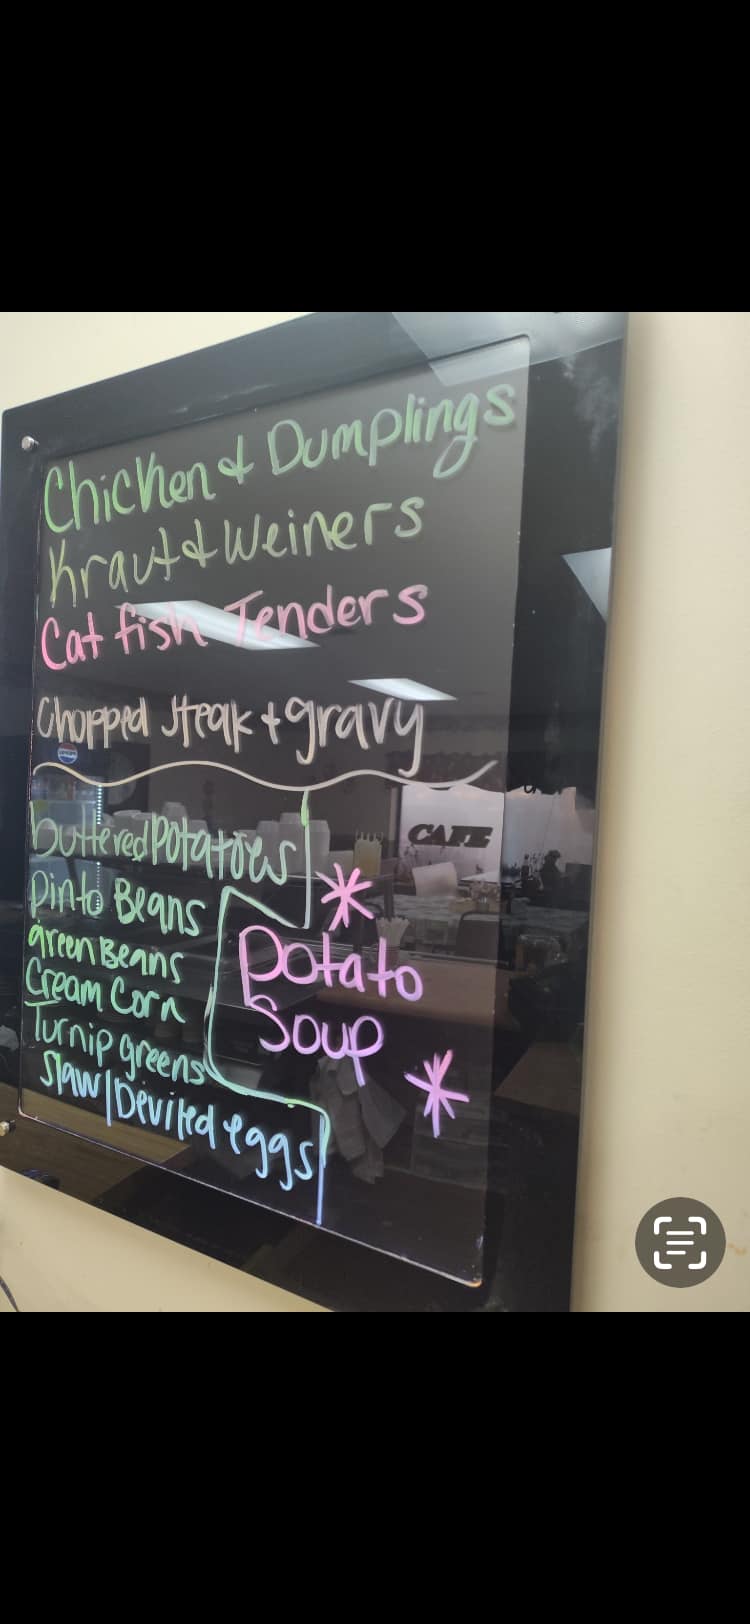 Chicken & Dumplings
Kraut & Weiners
Cat fish Tenders
Chopped Steak + gravy
buttered potatoes
Pinto Beans
green Beans
Cream Corn
Turnip greens
Slaw / Deviled eggs
* Potato
Soup *
CAFE